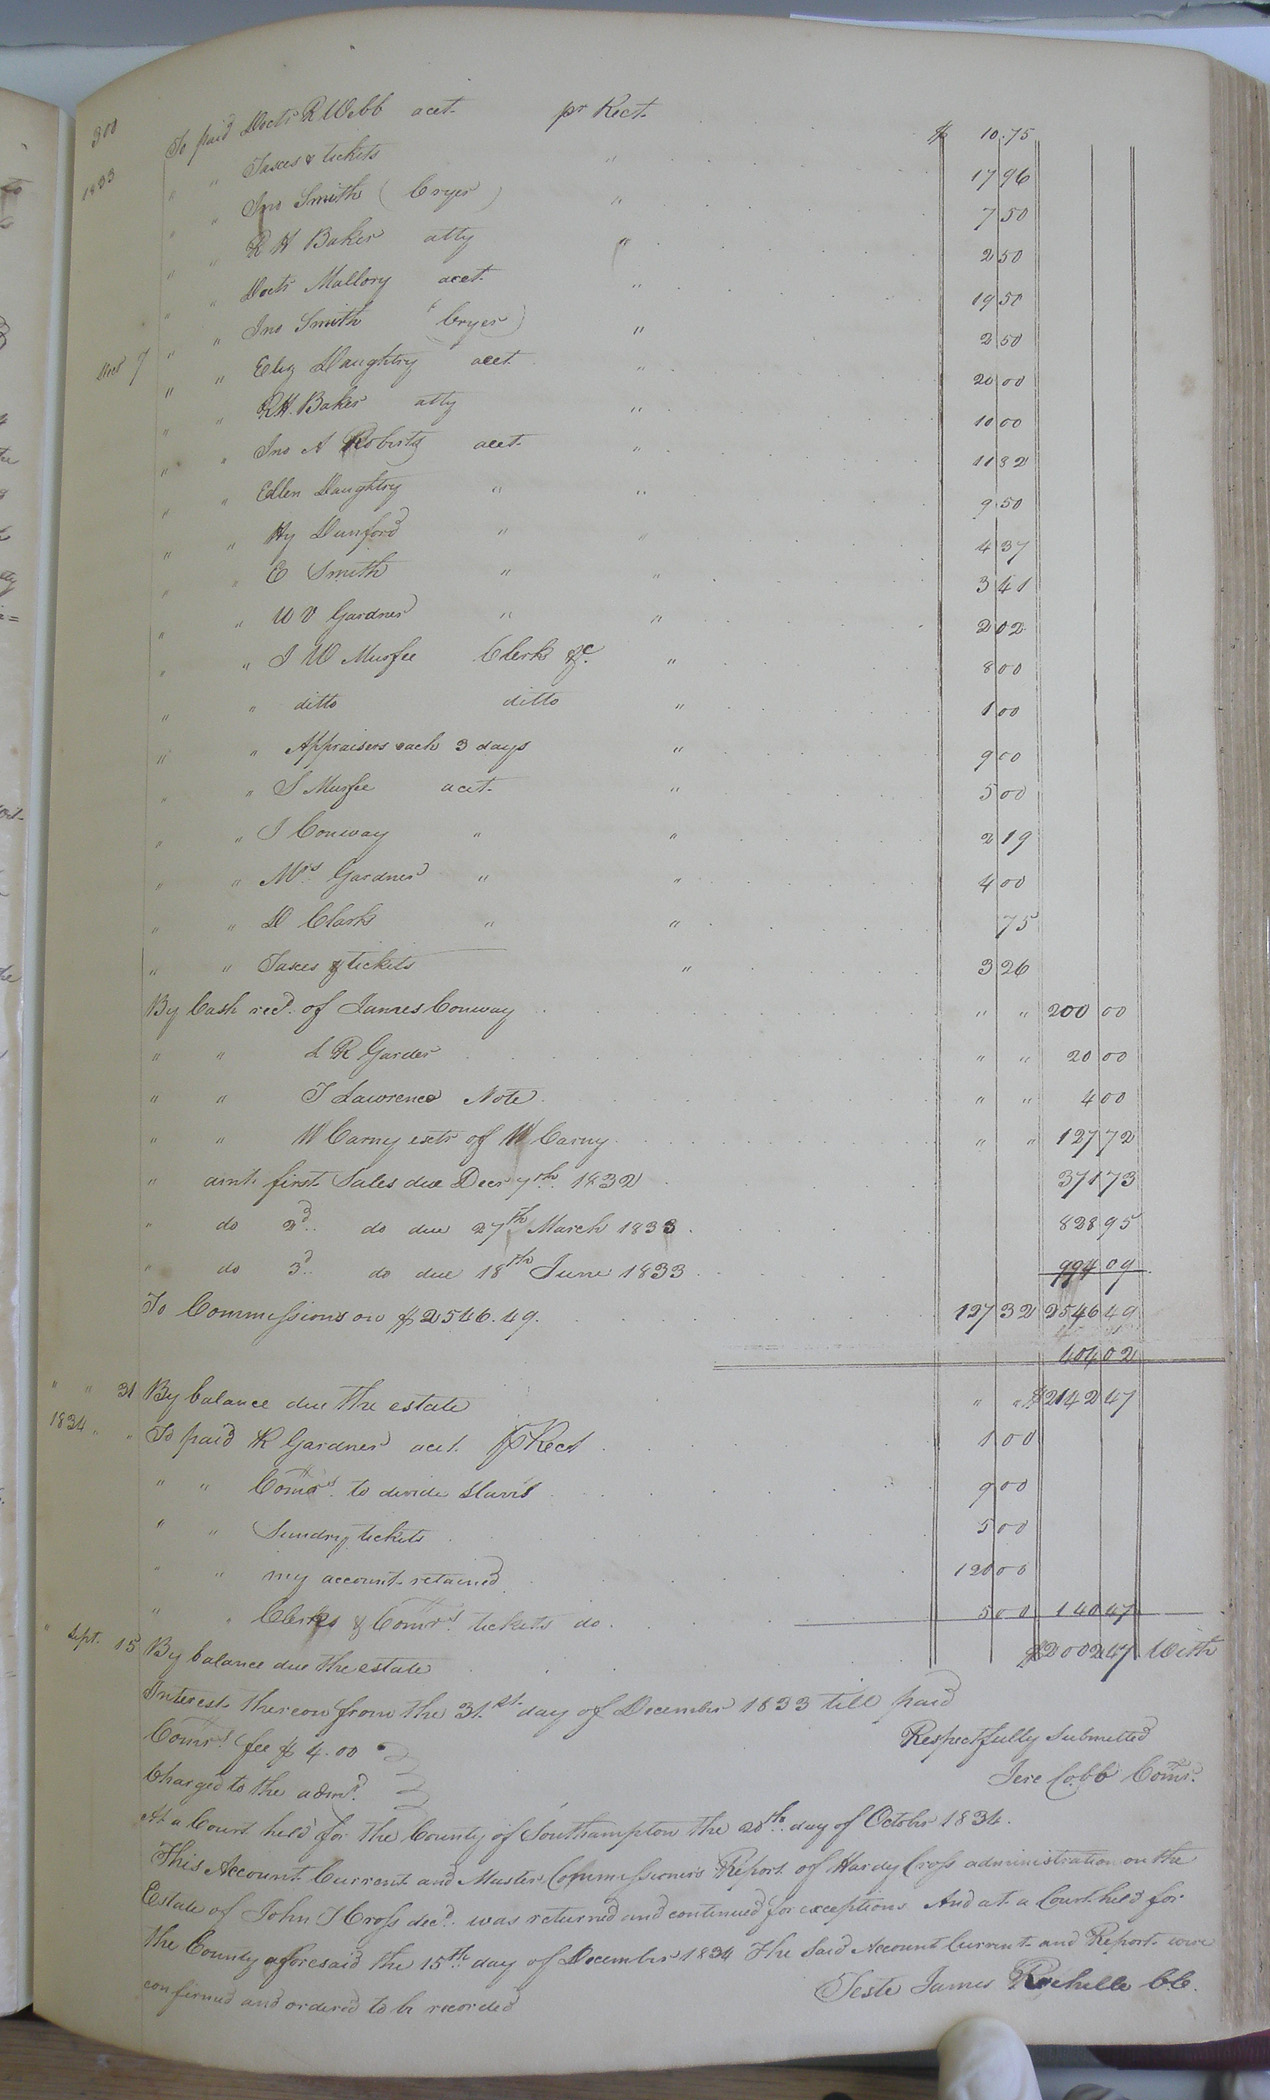 300
To paid Doctr R Webb acct. pr Rect. $ 10.75
1833 " " Taxes & tickets " 17 96
" " Jno Smith (Cryer) " 7 50
" " R H Baker atty " 2 50
" " Doctr Mallory acct. " 19 50
" " Jno Smith (Cryer) " 2 50
Decr 7 " " Eliz Daughtry acct " 20 00
" " R.H. Baker atty " 10 00
" " Jno A Roberts acct. " 11 32
" " Edlen Daughtry " " 9 50
" " Hy Dunford " " 4 37
" " E Smith " " 3 41
" " W V Gardner " " 2 02
" " J W Murfee Clerk &c. " 8 00
" " ditto ditto " 1 00
" " Appraisers each 3 days " 9 00
" " S Murfee acct. " 5 00
" " J Conway " " 2 19
" " Mrs. Gardner " " 4 00
" " D Clark " " 75
" " Taxes & tickets " 3 26
By Cash recd. of James Conway " " 200 00
" " L R Garder " " 20 00
" " T Lawrence Note " " 4 00
" " W Carny extr of W Carny " " 127 72
" amt. first Sales due Decr 7th. 1832 371 73
" do 2d.. do due 27th March 1833 828 95
" do 3d.. do due 18th June 1833 994 09
To Commissions on $2546.49. 127 32 2546 49
404 02
" " 31 By balance due the estate " " $2142 47
1834 " " To paid R Gardner acct. pr Rect 1 00
" " Comrs. to divide Slaves 9 00
" " Sundry tickets 5 00
" " my account retained 120 00
" " Clerks & Comrs. tickets do. 5 00 140 47
" Sept. 15 By balance due the estate $2002 47 With
Interest thereon from the 31st. day of December 1833 till paid
Comrs. fee $4.00
Respectfully Submitted
Charged to the admr.
Jere Cobb Comr.
At a Court held for the County of Southampton the 20th. day of October 1834.
This Account Current and Master Commissioner's Report of Hardy Cross administration on the
Estate of John T Cross decd. was returned and continued for exceptions And at a Court held for
the County aforesaid the 15th. day of December 1834 The Said Account Current and Report were
confirmed and ordered to be recorded
Teste James Rochelle C.C.